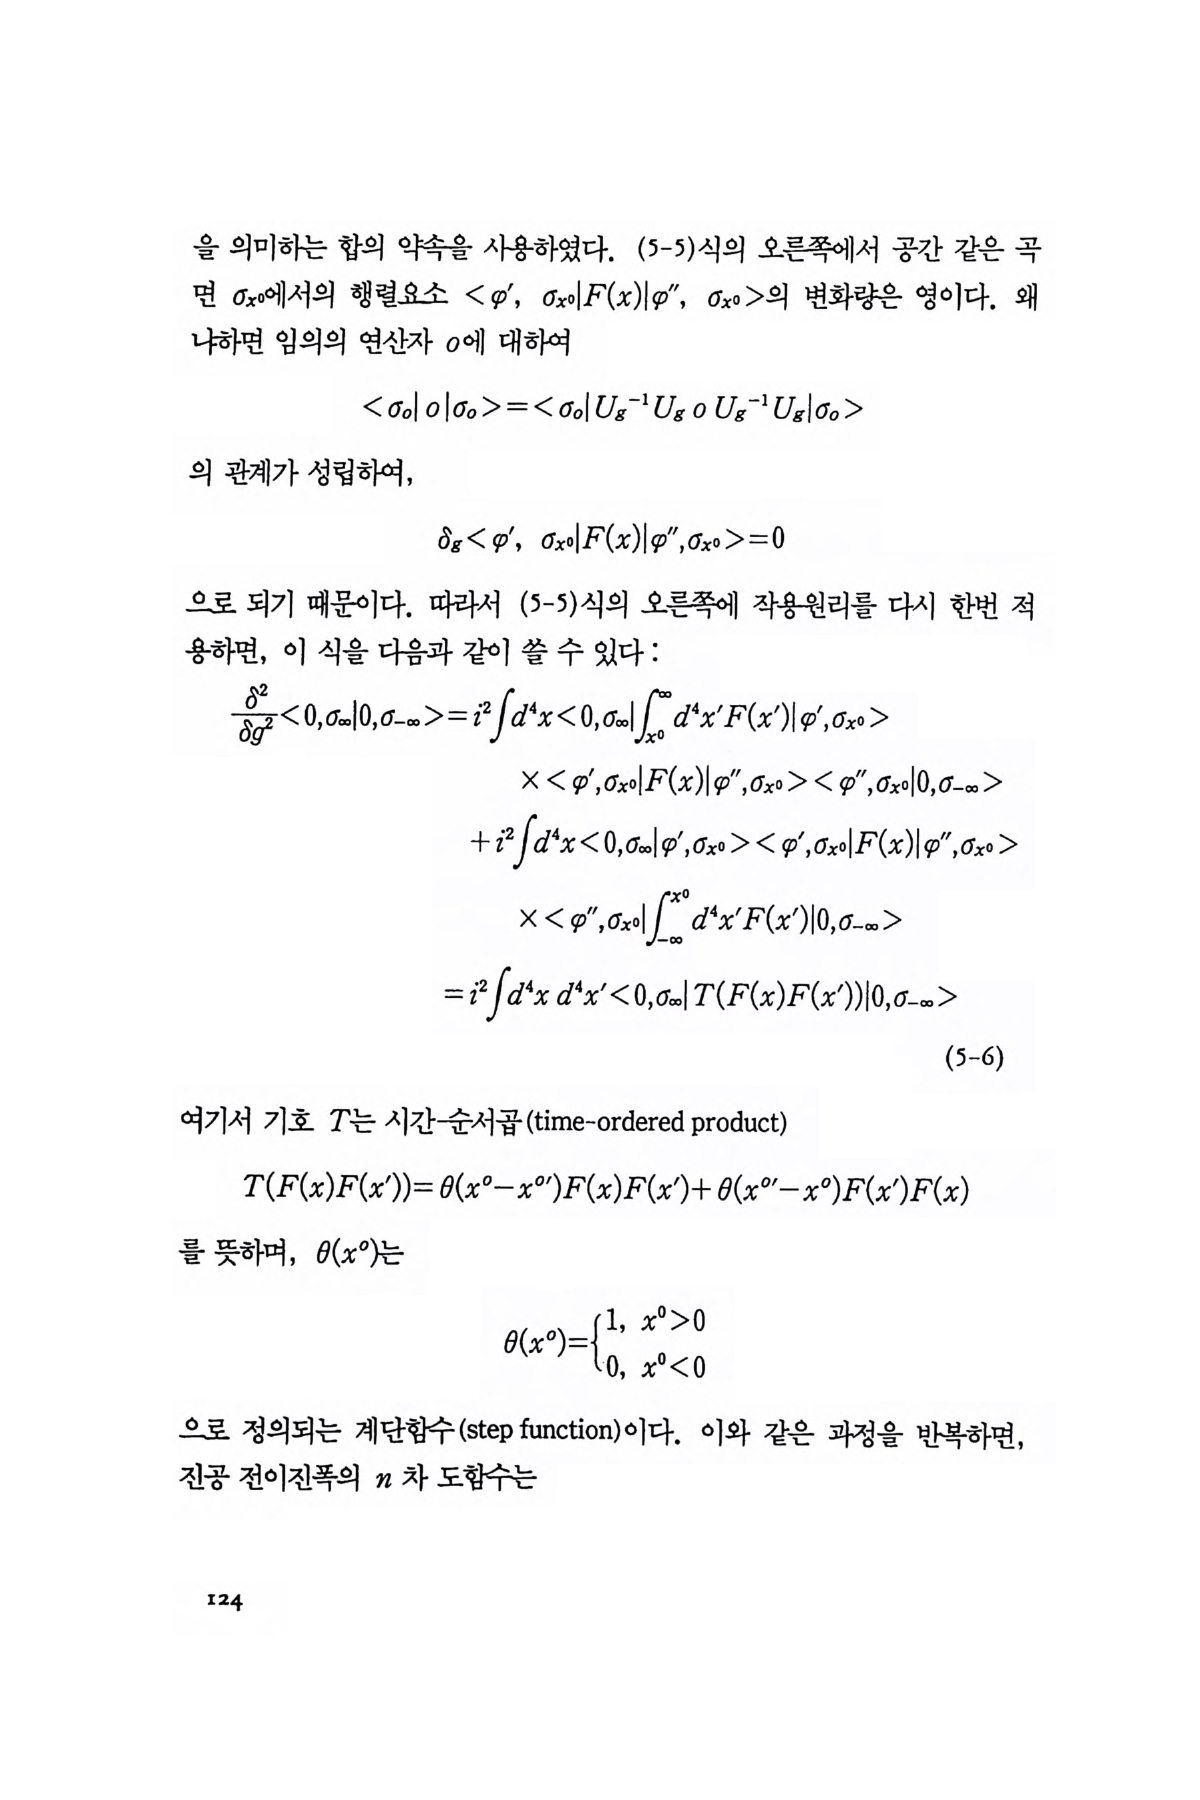 을 의미하는 합의 약속을 사용하였다. (5-5)식의 오른쪽에서 공간 같은 곡
면 σₓ⁰에서의 행렬요소 <φ′, σₓ⁰|F(x)|φ″, σₓ⁰>의 변화량은 영이다. 왜
냐하면 임의의 연산자 o에 대하여
<σₒ| o |σₒ>=<σₒ| U_g⁻¹ U_g o U_g⁻¹ U_g|σₒ>
의 관계가 성립하여,
δ_g<φ′, σₓ⁰|F(x)|φ″,σₓ⁰>=0
으로 되기 때문이다. 따라서 (5-5)식의 오른쪽에 작용원리를 다시 한번 적
용하면, 이 식을 다음과 같이 쓸 수 있다 :
δ²/δg² <0,σ_∞|0,σ_-∞>= i²∫d⁴x<0,σ_∞|∫_x⁰^∞ d⁴x′F(x′)|φ′,σₓ⁰>
×<φ′,σₓ⁰|F(x)|φ″,σₓ⁰><φ″,σₓ⁰|0,σ_-∞>
+i²∫d⁴x<0,σ_∞|φ′,σₓ⁰><φ′,σₓ⁰|F(x)|φ″,σₓ⁰>
×<φ″,σₓ⁰|∫_-∞^x⁰ d⁴x′F(x′)|0,σ_-∞>
=i²∫d⁴x d⁴x′<0,σ_∞| T(F(x)F(x′))|0,σ_-∞>
(5-6)
여기서 기호 T는 시간-순서곱(time-ordered product)
T(F(x)F(x′))=θ(x⁰−x⁰′)F(x)F(x′)+θ(x⁰′−x⁰)F(x′)F(x)
를 뜻하며, θ(x⁰)는
θ(x⁰)={1, x⁰>0
0, x⁰<0
으로 정의되는 계단함수(step function)이다. 이와 같은 과정을 반복하면,
진공 전이진폭의 n 차 도함수는
124